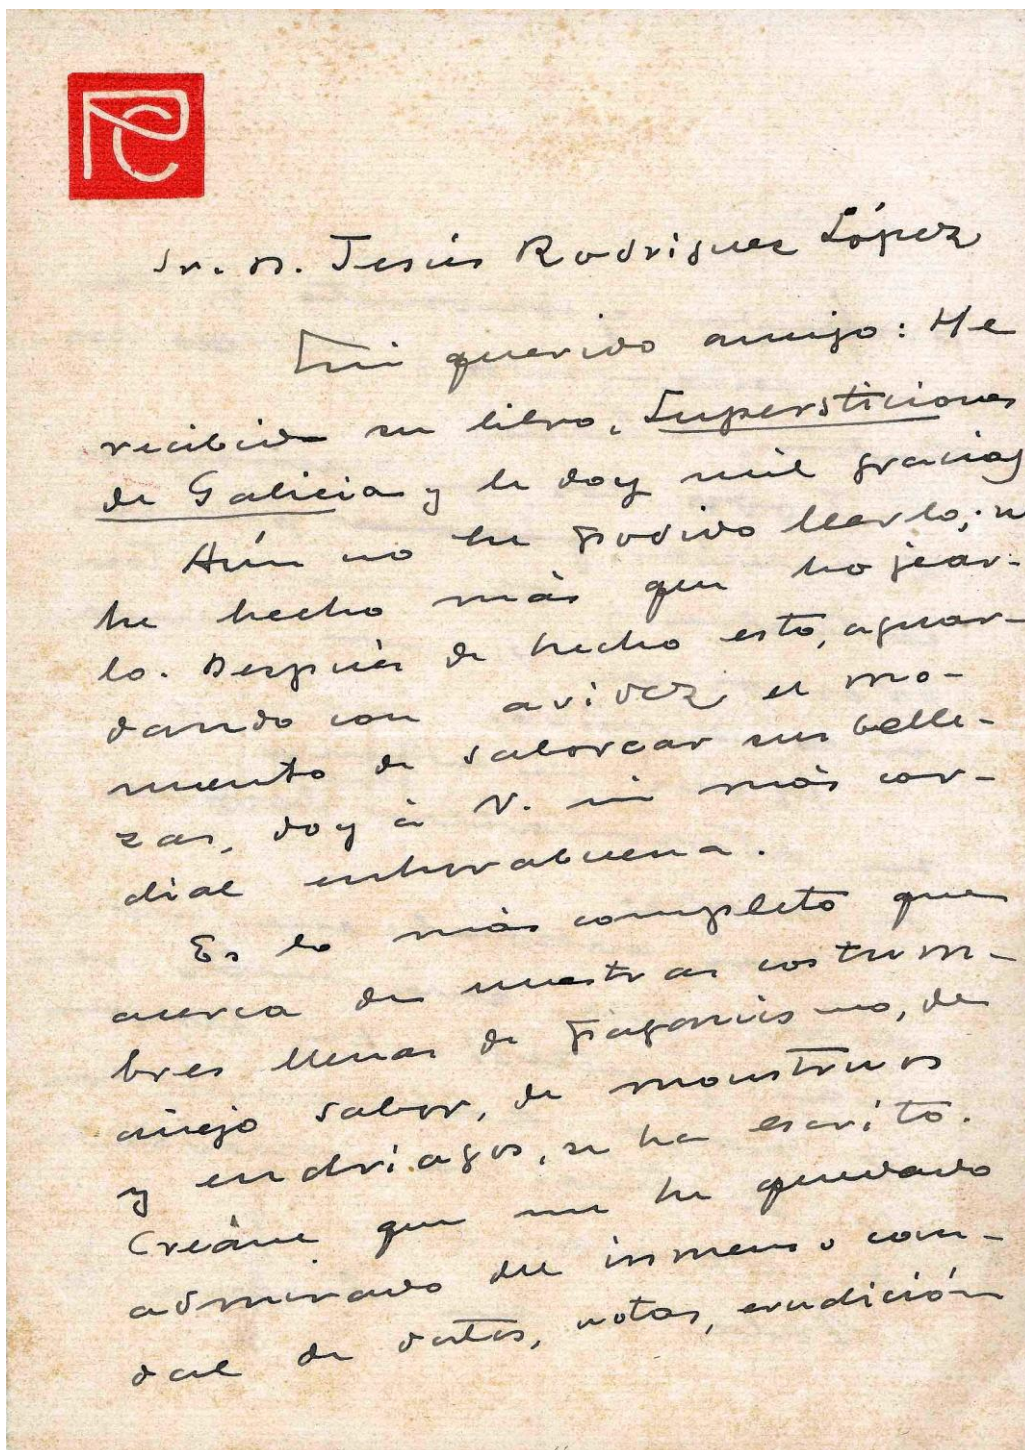 RC
Sr. D. Jesús Rodriguez López
Mi querido amigo: He
recibido su libro, Supersticiones
de Galicia y le doy mil gracias
Aún no he podido lleerlo; n
he hecho más que hojear-
lo. Después de hecho esto, aguar-
dando con avidez el mo-
mento de saborear sus belle-
zas, doy à V. mi más cor-
dial enhorabuena.
Es lo más completo que
acerca de nuestras costum-
bres llenas de paganismo, de
añejo sabor, de monstruos
y endriagos, se ha escrito.
Creáme que me he quedado
admirado del inmenso cau-
dal de datos, notas, erudición